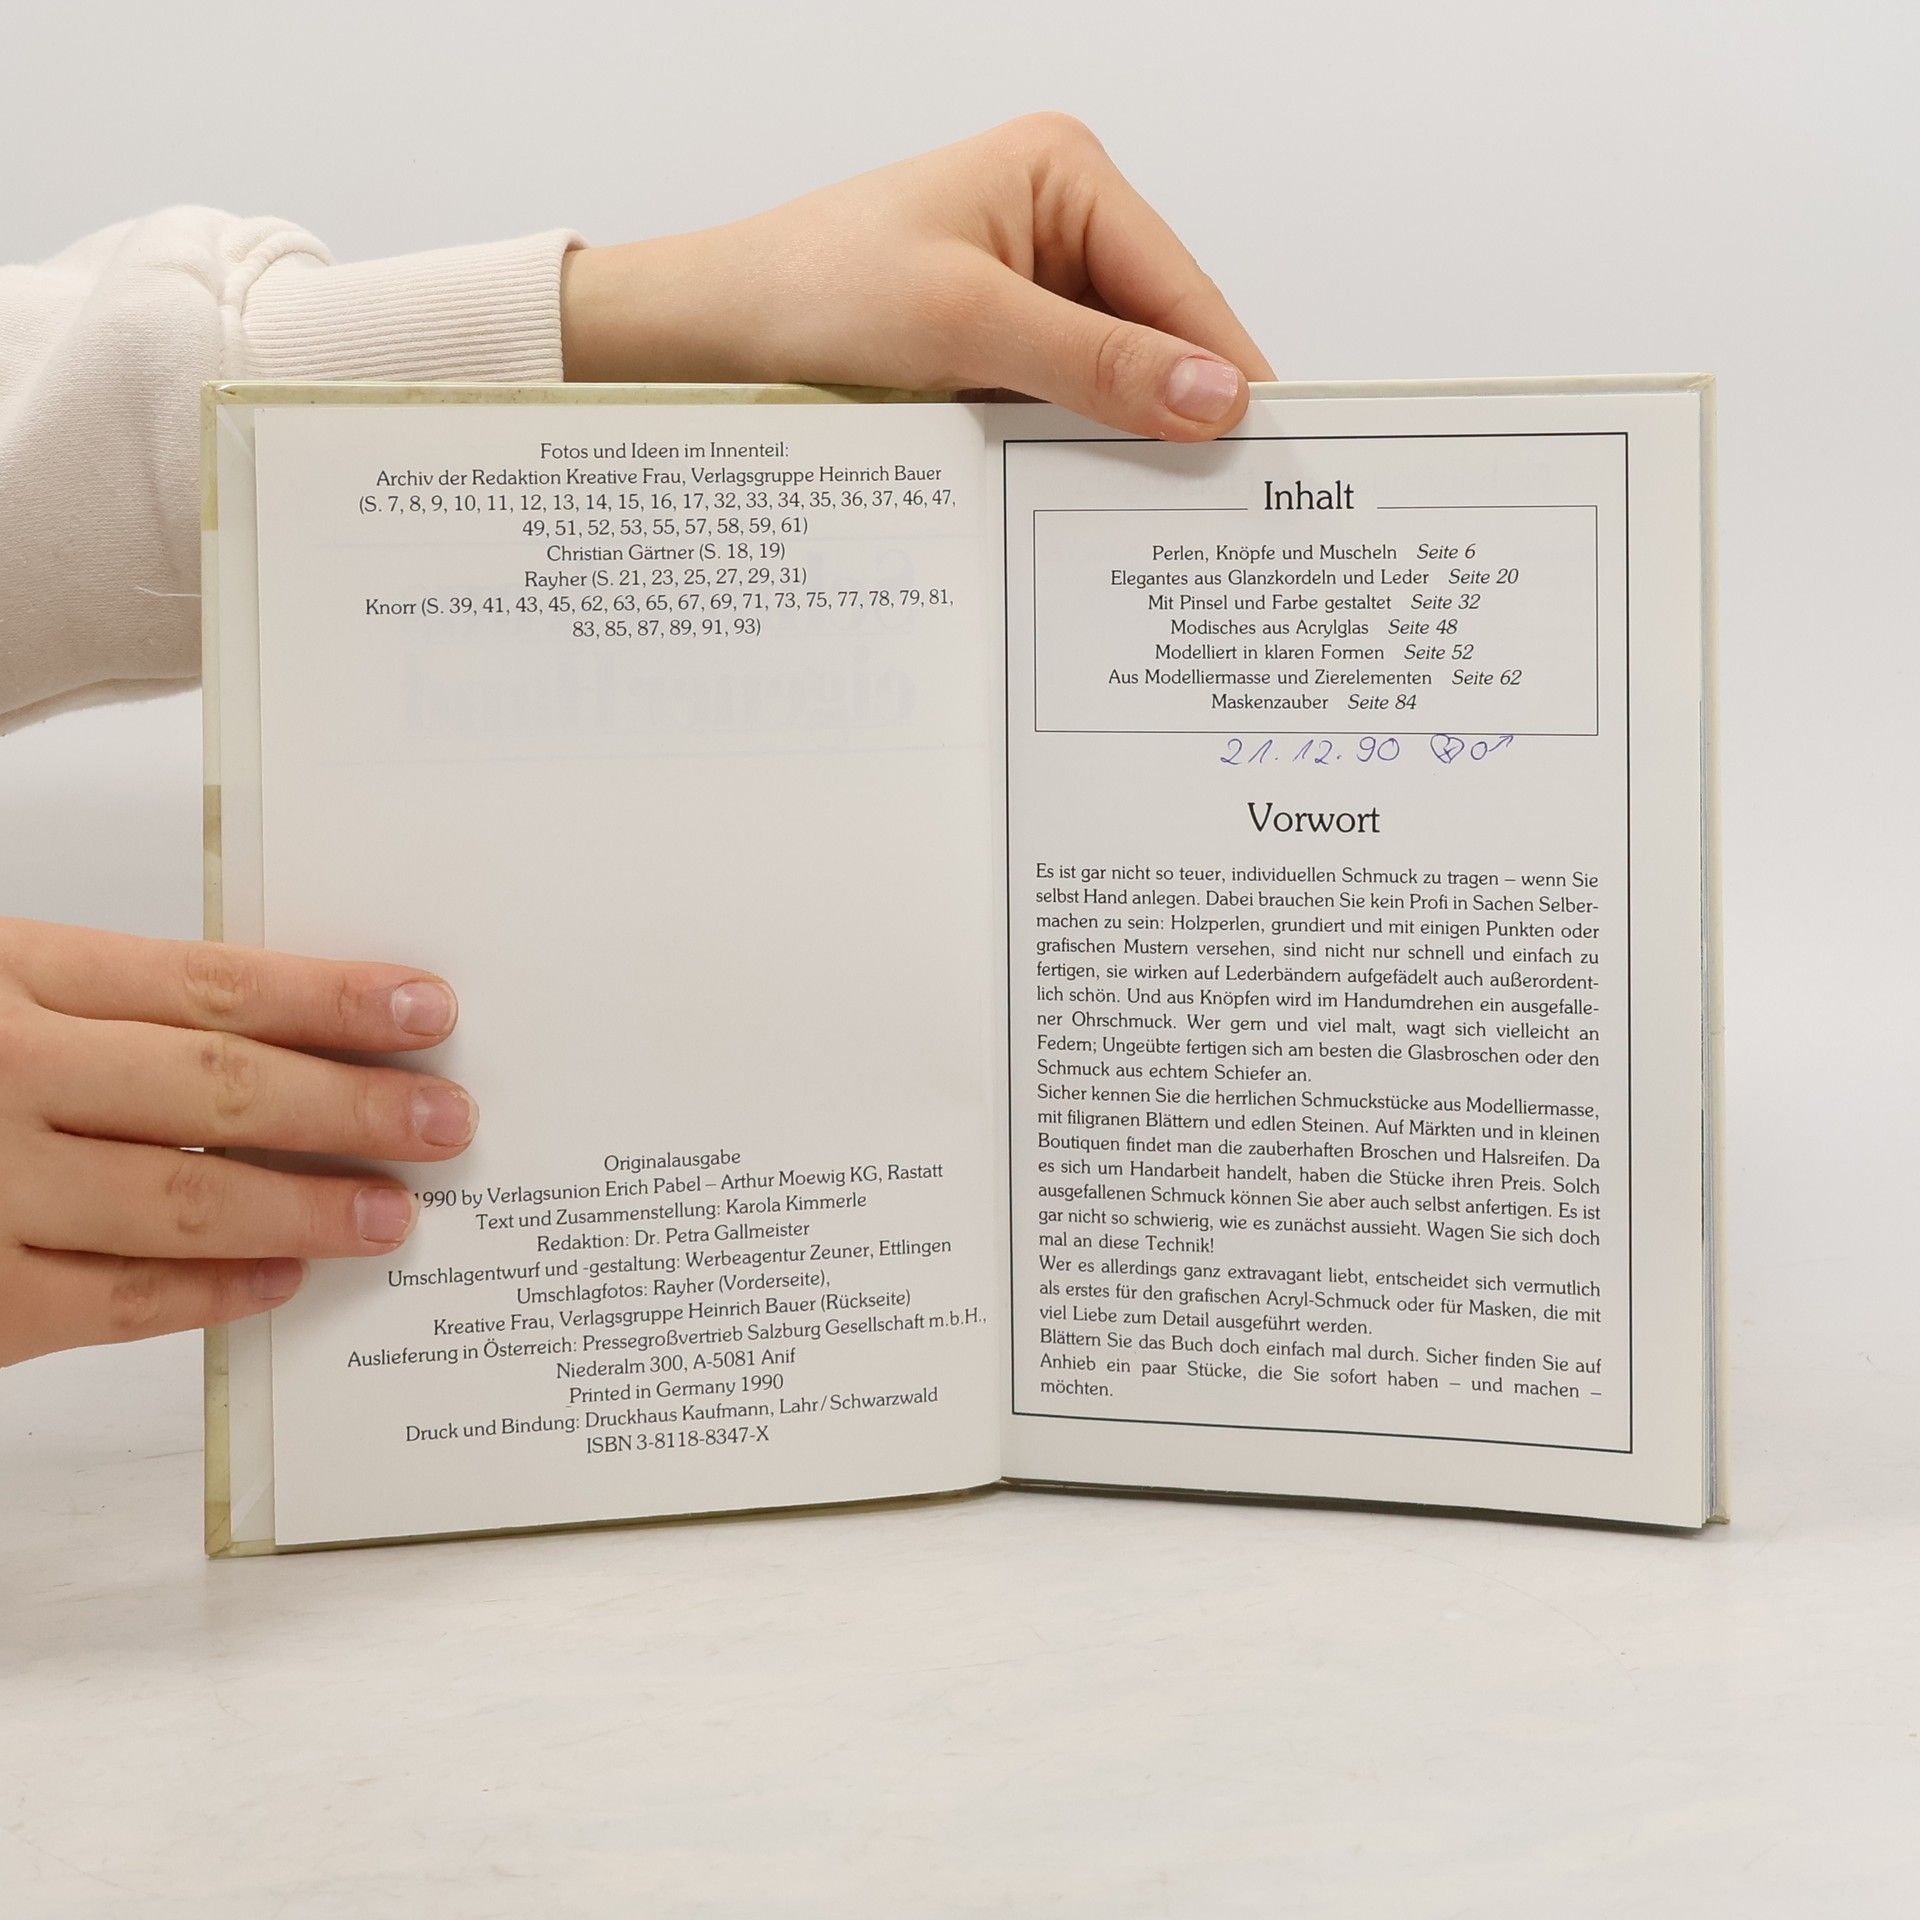 Fotos und Ideen im Innenteil:
Archiv der Redaktion Kreative Frau, Verlagsgruppe Heinrich Bauer
(S. 7, 8, 9, 10, 11, 12, 13, 14, 15, 16, 17, 32, 33, 34, 35, 36, 37, 46, 47,
49, 51, 52, 53, 55, 57, 58, 59, 61)
Christian Gärtner (S. 18, 19)
Rayher (S. 21, 23, 25, 27, 29, 31)
Knorr (S. 39, 41, 43, 45, 62, 63, 65, 67, 69, 71, 73, 75, 77, 78, 79, 81,
83, 85, 87, 89, 91, 93)
Originalausgabe
1990 by Verlagsunion Erich Pabel – Arthur Moewig KG, Rastatt
Text und Zusammenstellung: Karola Kimmerle
Redaktion: Dr. Petra Gallmeister
Umschlagentwurf und -gestaltung: Werbeagentur Zeuner, Ettlingen
Umschlagfotos: Rayher (Vorderseite),
Kreative Frau, Verlagsgruppe Heinrich Bauer (Rückseite)
Auslieferung in Österreich: Pressegroßvertrieb Salzburg Gesellschaft m.b.H.,
Niederalm 300, A-5081 Anif
Printed in Germany 1990
Druck und Bindung: Druckhaus Kaufmann, Lahr/Schwarzwald
ISBN 3-8118-8347-X
Inhalt
Perlen, Knöpfe und Muscheln Seite 6
Elegantes aus Glanzkordeln und Leder Seite 20
Mit Pinsel und Farbe gestaltet Seite 32
Modisches aus Acrylglas Seite 48
Modelliert in klaren Formen Seite 52
Aus Modelliermasse und Zierelementen Seite 62
Maskenzauber Seite 84
21.12.90
Vorwort
Es ist gar nicht so teuer, individuellen Schmuck zu tragen – wenn Sie
selbst Hand anlegen. Dabei brauchen Sie kein Profi in Sachen Selber-
machen zu sein: Holzperlen, grundiert und mit einigen Punkten oder
grafischen Mustern versehen, sind nicht nur schnell und einfach zu
fertigen, sie wirken auf Lederbändern aufgefädelt auch außerordent-
lich schön. Und aus Knöpfen wird im Handumdrehen ein ausgefalle-
ner Ohrschmuck. Wer gern und viel malt, wagt sich vielleicht an
Federn; Ungeübte fertigen sich am besten die Glasbroschen oder den
Schmuck aus echtem Schiefer an.
Sicher kennen Sie die herrlichen Schmuckstücke aus Modelliermasse,
mit filigranen Blättern und edlen Steinen. Auf Märkten und in kleinen
Boutiquen findet man die zauberhaften Broschen und Halsreifen. Da
es sich um Handarbeit handelt, haben die Stücke ihren Preis. Solch
ausgefallenen Schmuck können Sie aber auch selbst anfertigen. Es ist
gar nicht so schwierig, wie es zunächst aussieht. Wagen Sie sich doch
mal an diese Technik!
Wer es allerdings ganz extravagant liebt, entscheidet sich vermutlich
als erstes für den grafischen Acryl-Schmuck oder für Masken, die mit
viel Liebe zum Detail ausgeführt werden.
Blättern Sie das Buch doch einfach mal durch. Sicher finden Sie auf
Anhieb ein paar Stücke, die Sie sofort haben – und machen –
möchten.